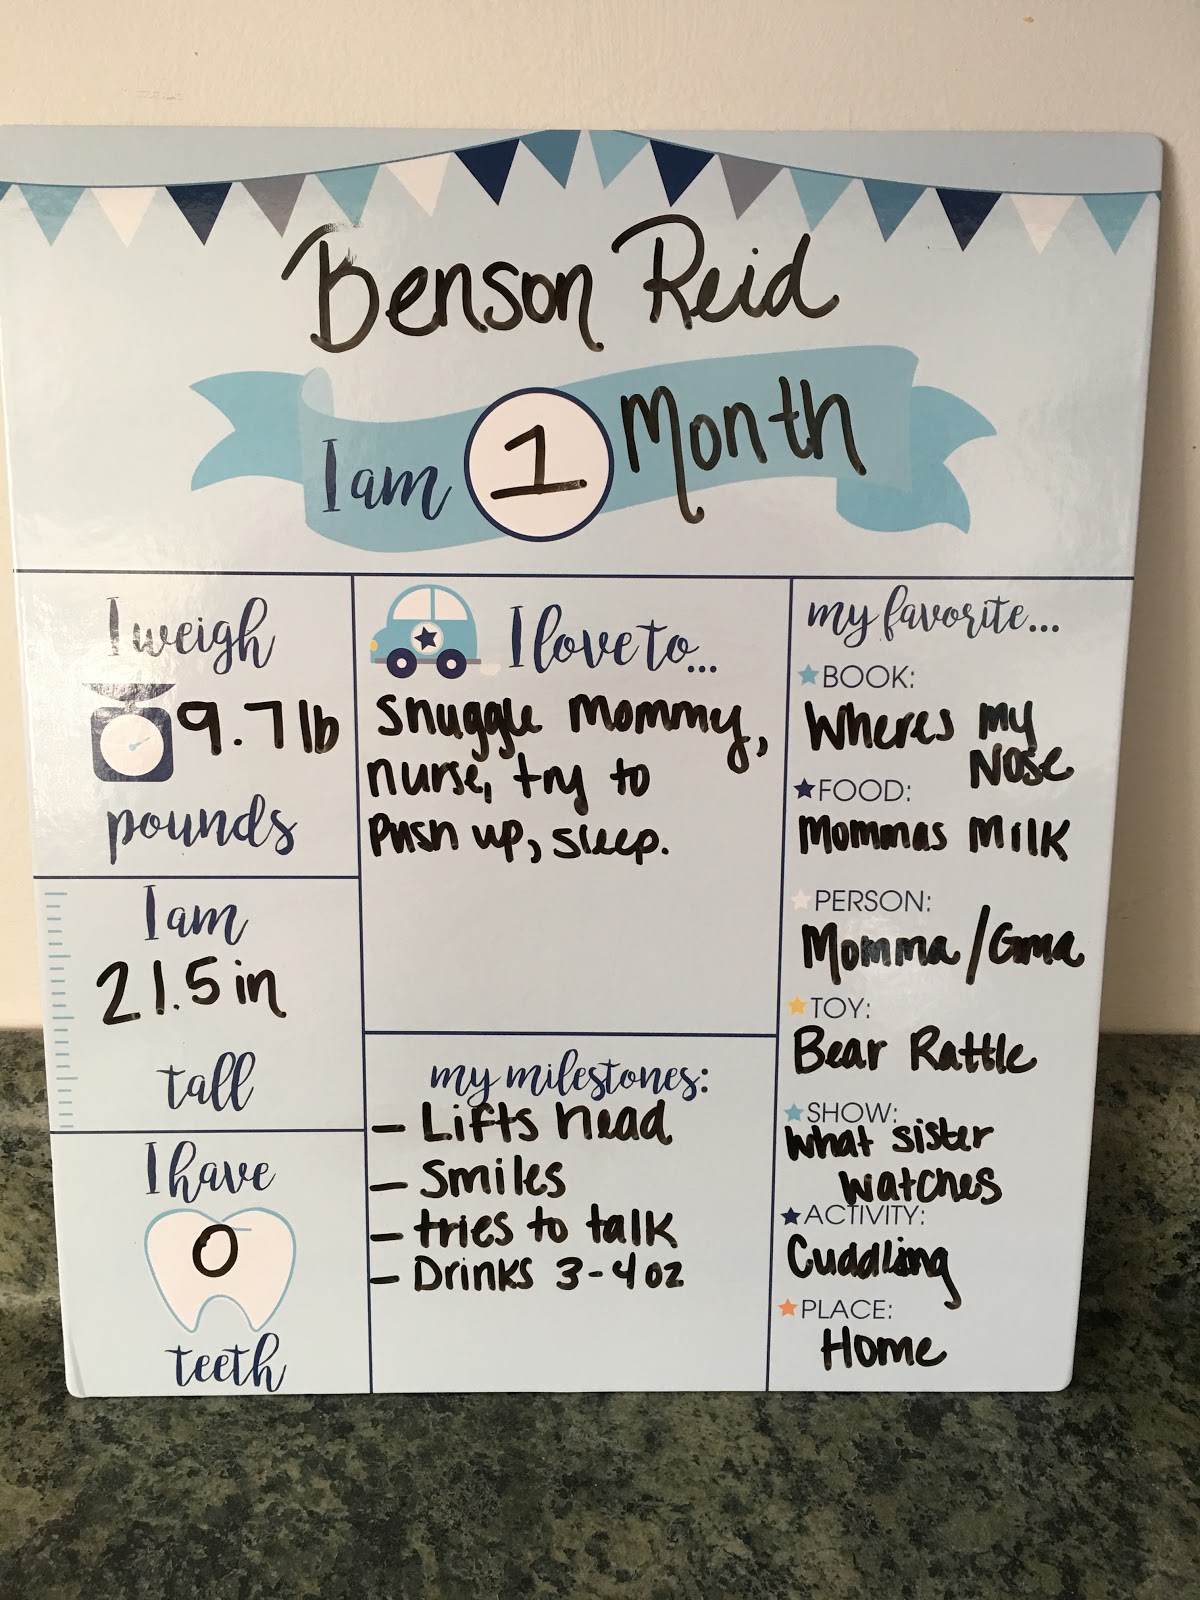 Benson Reid
I am 1 Month
I weigh
9.7 lb
pounds
I am
21.5 in
tall
I have
0
teeth
I love to...
Snuggle Mommy,
nurse, try to
Push up, sleep.
my milestones:
- Lifts head
- Smiles
- tries to talk
- Drinks 3-4 oz
my favorite...
BOOK:
Wheres my
Nose
FOOD:
Mommas Milk
PERSON:
Momma/Gma
TOY:
Bear Rattle
SHOW:
What sister
watches
ACTIVITY:
Cuddling
PLACE:
Home